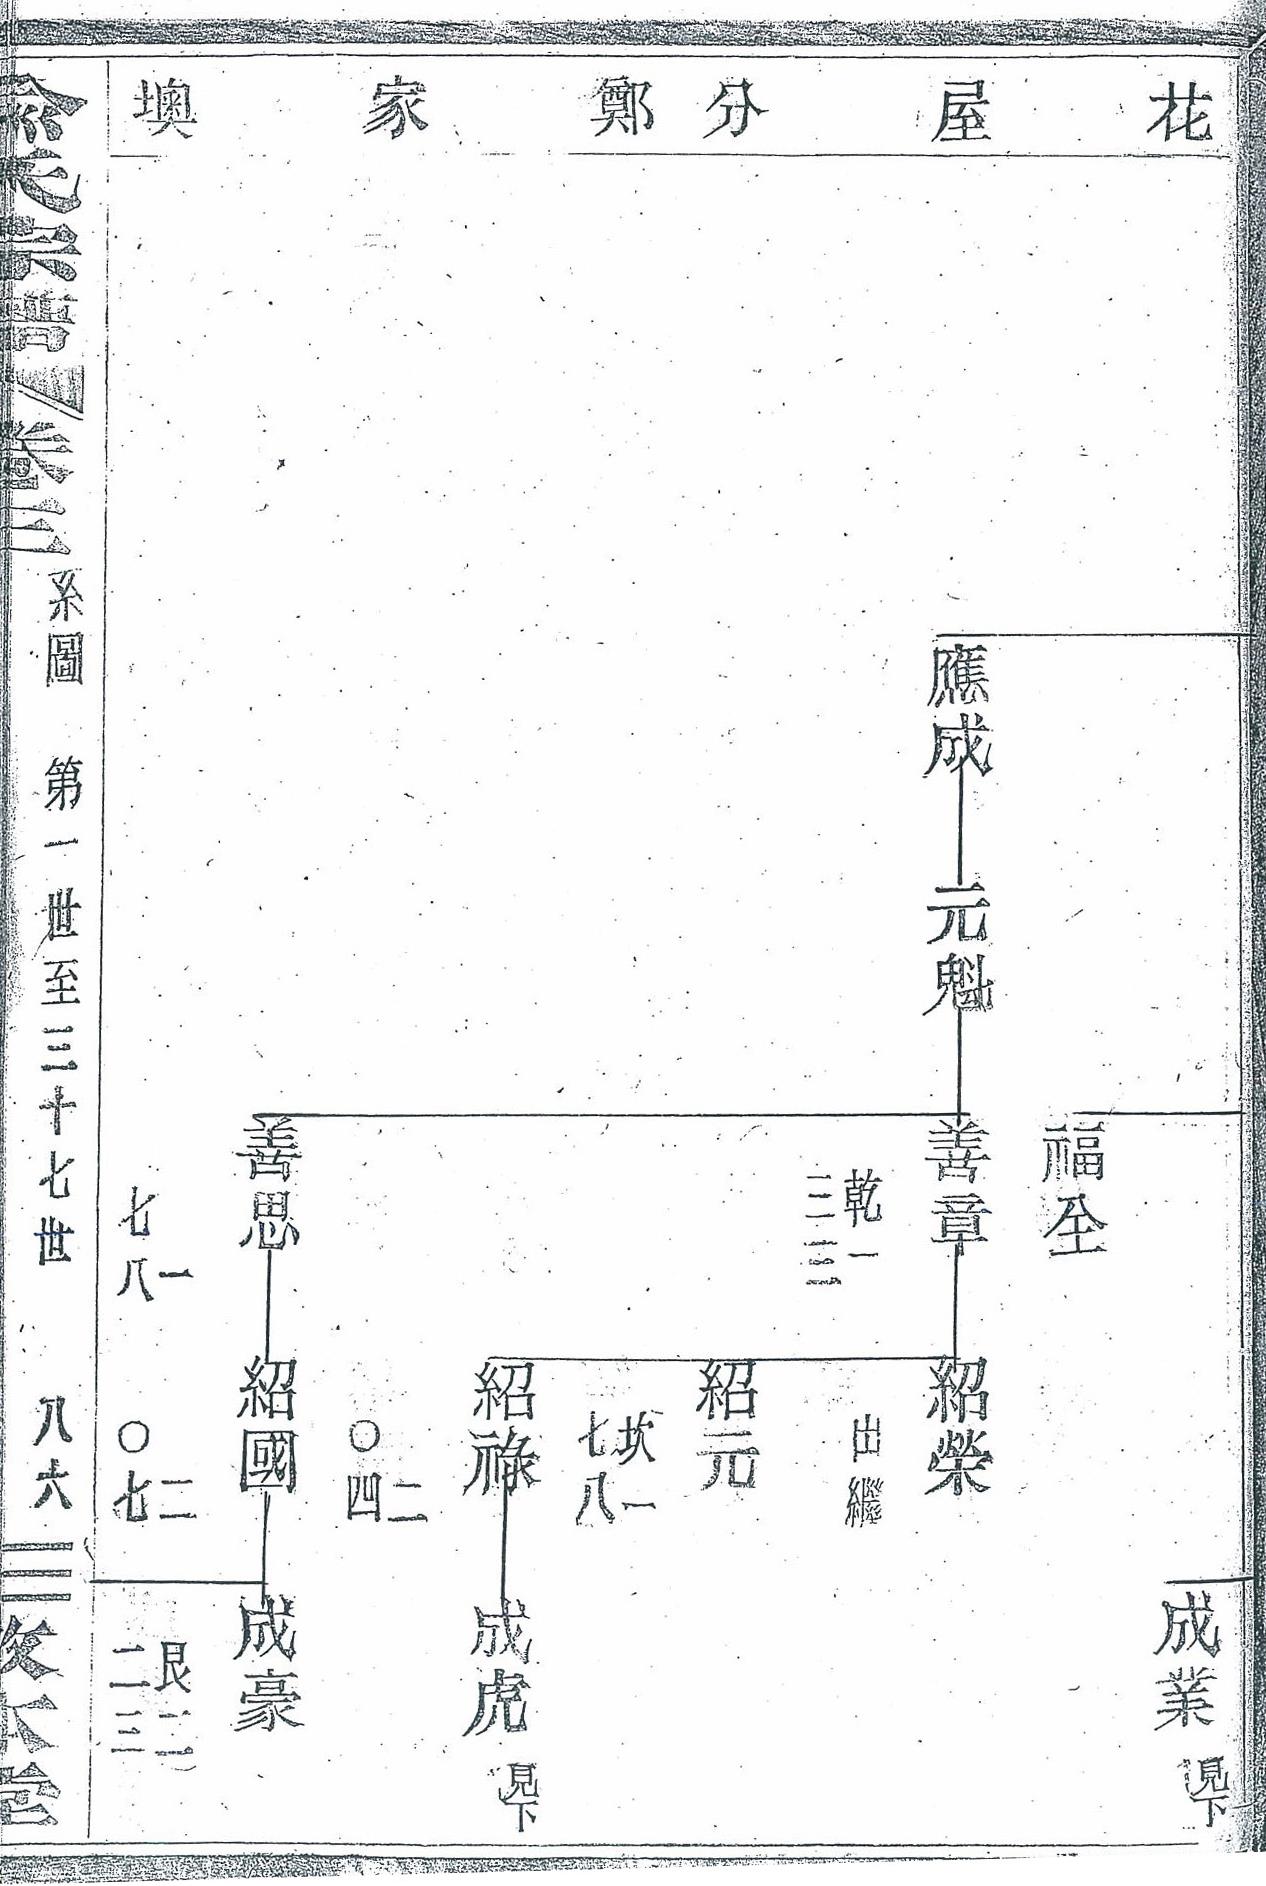 花屋分鄭家墺
應成
元魁
福全
善章
乾一
二三三
善思
一
七八
紹榮
出繼
紹元
坎一
七八
紹祿
二
〇四
紹國
二
〇七
成業
見下
成虎
見下
成豪
艮二
二三
俞氏宗譜 卷三 系圖 第一世至三十七世 八六 三